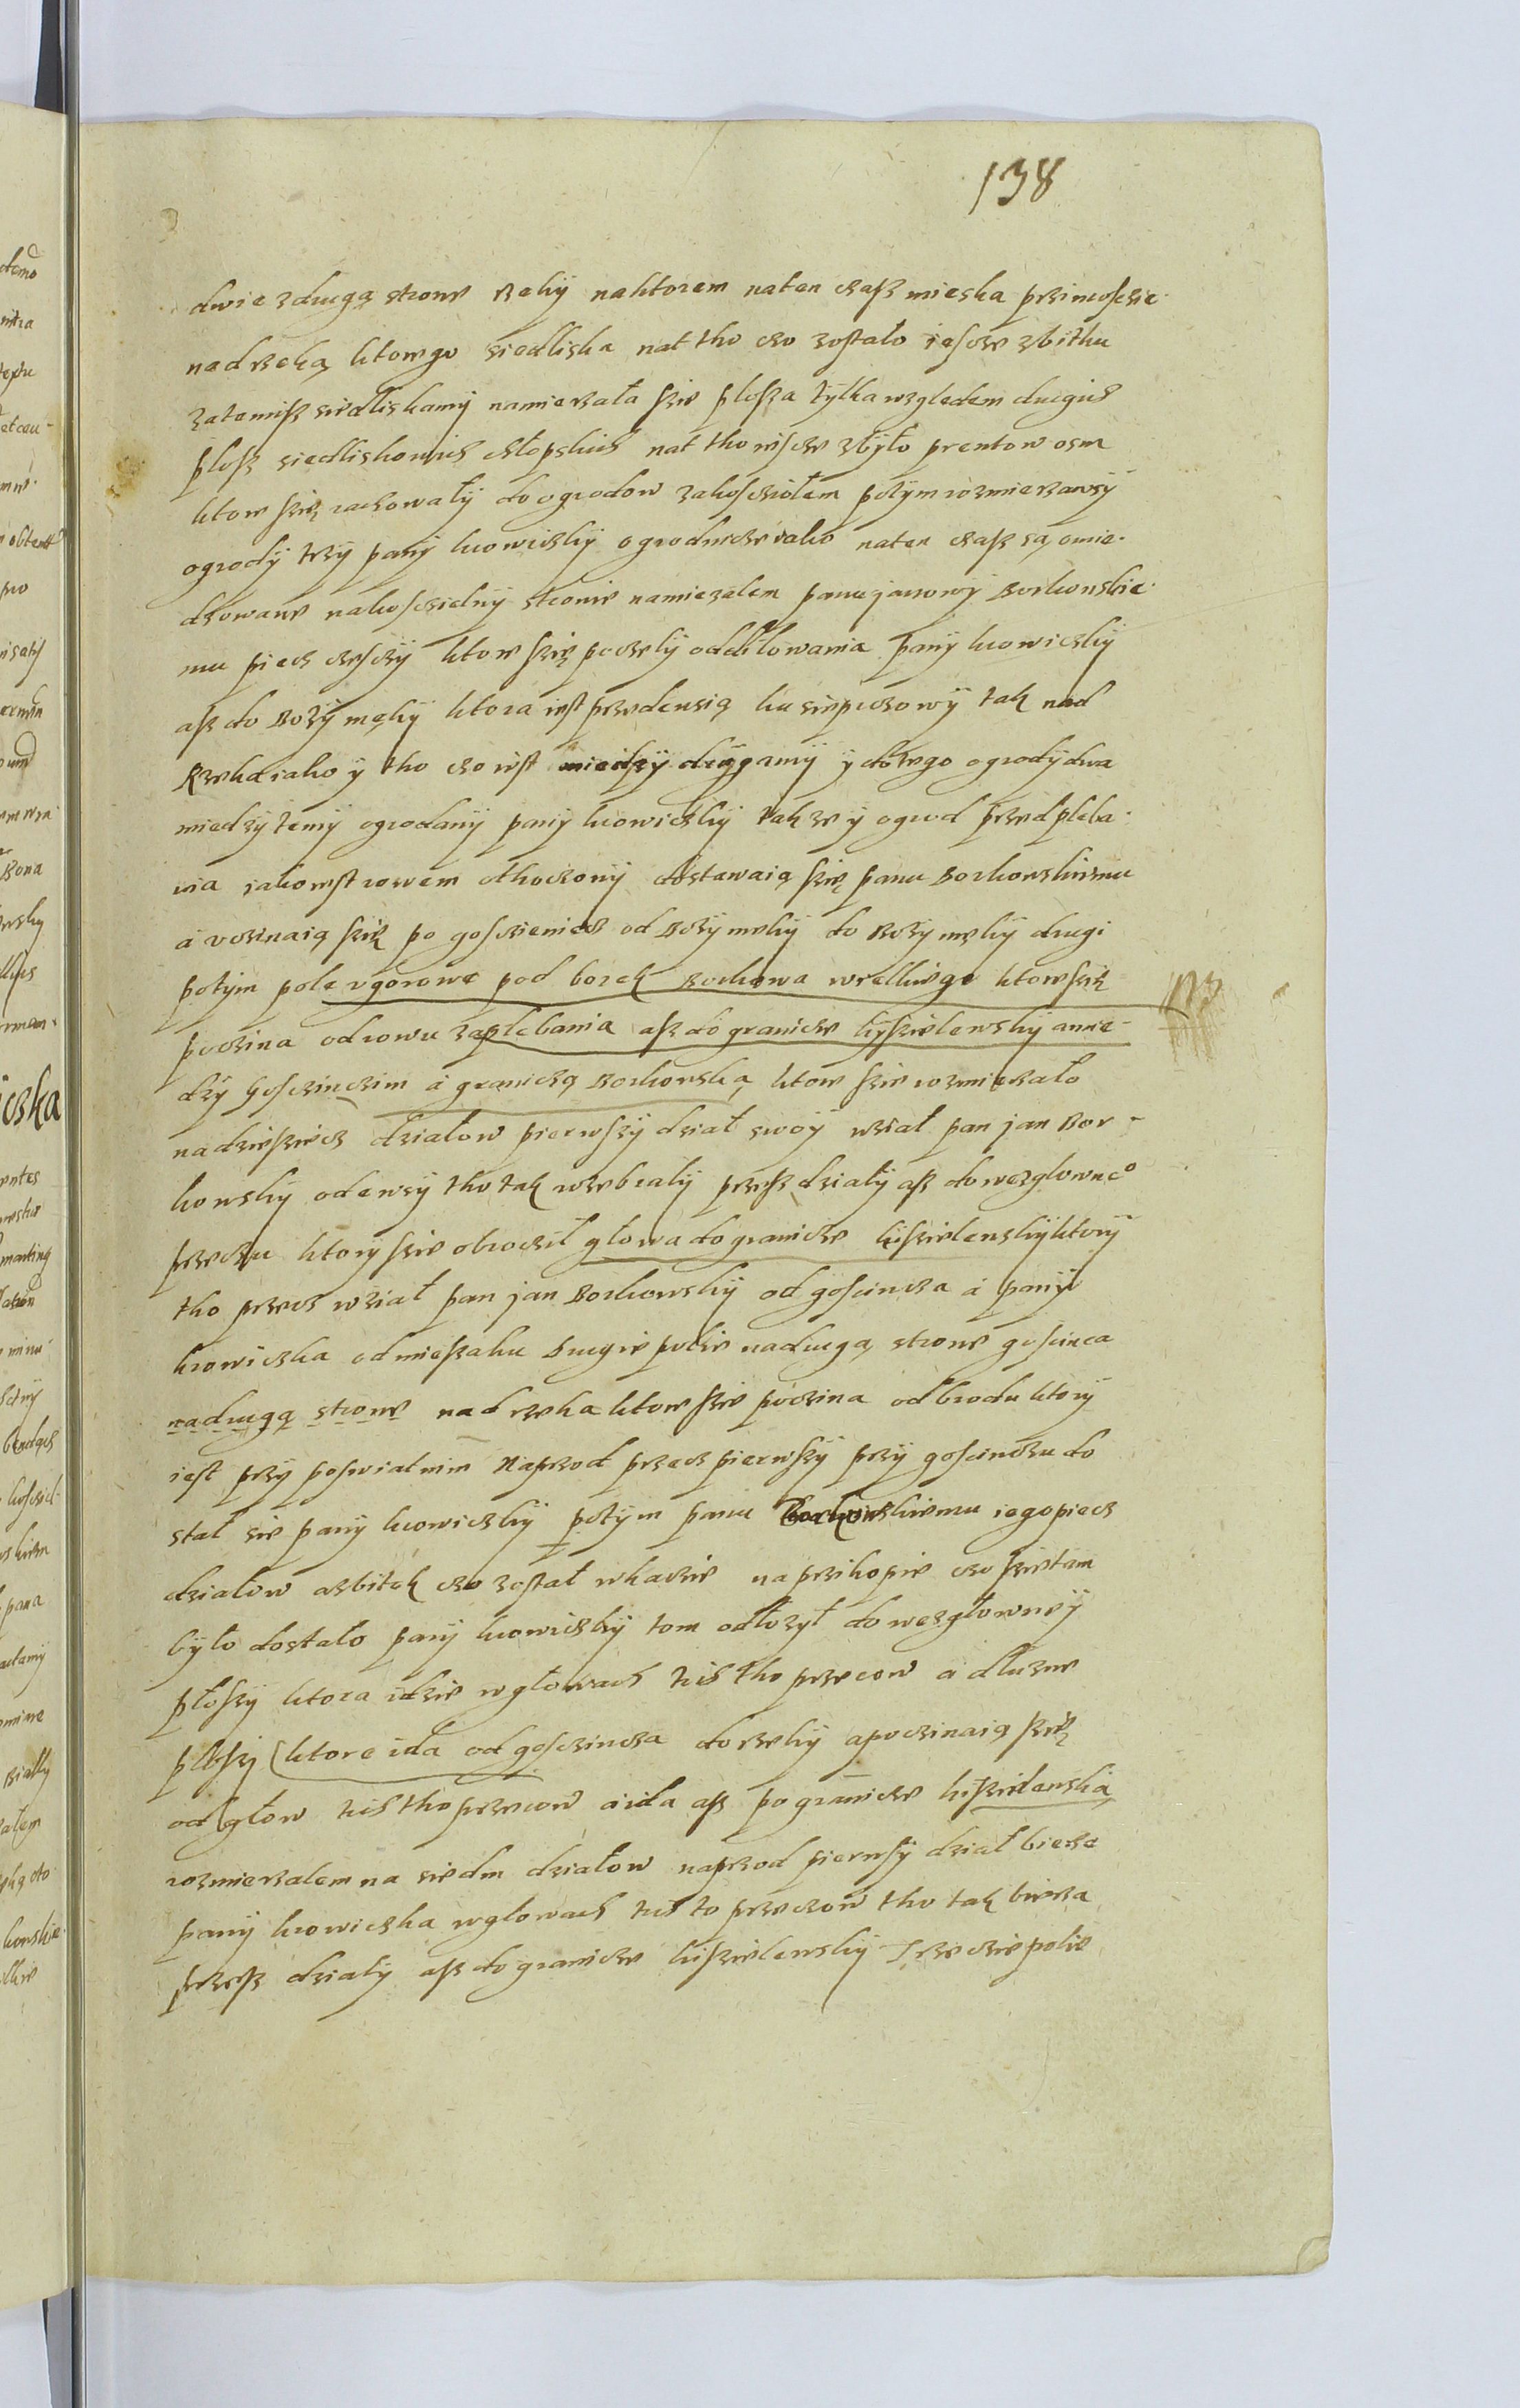 138
dwie zdrugą strone rzeky naktorem naten czasz mieska przimoscie
nadrzeką ktorego siedliska nat tho czo zostało iescze zbitku
zatemisz siedliskamÿ namierzała szie płosza tÿlka wzgledem drugich
płosz siedliskowich chłopskich nat tho iescze zbÿło prentow osm
ktore szię rachowałÿ do ogrodow zakoscziołem potÿm rozmierzawsÿ
ogrodÿ trzÿ panÿ krowiczkÿ ogrodnicze iako naten czasz są omie
dzowane nakosczielnÿ stronie namierzalem panu janowÿ Borkowskie
mu piecz czesczÿ ktore szię poczelÿ oddiłowania panÿ krowiczkÿ
asz do Bozÿ mękÿ ktora iest przedewsią ku siepiczowÿ tak nad
Rzeką iako ÿ tho czo iest miedszÿ drÿgamÿ ÿ do tego ogrodÿ dwa
miedzÿ temÿ ogrodamÿ panÿ krowiczkÿ takze ÿ ogrod przed pleba
nia iako iest rowem othoczonÿ dostawaią szię panu Borkowskiemu
a poczinaią szię po gosczieniecz od Bozÿ mekÿ do Bozÿ mękÿ drugi
potÿm pole ugorowe pod borek Borkowa wielkiego ktore szię
poczina od rowu zaplebania asz do granicze kÿszielewskÿ amie
dzÿ Gosczinczim a graniczą Borkowską ktore szie rozmierzało
nadzieszięcz działow pierwszÿ dział swoÿ wział pan jan Bor
kowskÿ odewsÿ tho tak wzebrałÿ przesz działÿ asz do wezglowne°
przeczu ktorÿ szie obrocził głowa do granicze kiszielewskÿ ktorÿ
tho przecz wział pan jan Borkowskÿ od goscincza a panÿ
krowiczka odmieszaku Drugie polie nadrugą strone goscinca
nadrugą strone nad rzeka ktore szie poczina od brodu ktorÿ
iest przÿ poswiatnim Naprzod przecz pierwszÿ przÿ goscinczu do
stał sie panÿ krowiczkÿ potÿm panu Borkowskiemu iego piecz
działow azbitek czo został wkaczie na przikopie czo szie tam
bÿło dostało panÿ krowiczkÿ tom odłozył do wezgłownÿ
płoszÿ ktora idzie wgłowach tich tho przecow a dłuzne
płoszÿ ktore ida od goszczincza do rzekÿ apoczinaią szię
od głow tich tho przecow aida asz po granicze kiszielewską
rozmierzalem na siedm działow naprzod pierwsÿ dział bierze
panÿ krowiczka wglowach tich to przeczow tho tak biera
przesz działÿ asz do granicze kiszielewskÿ Trzeczie polie